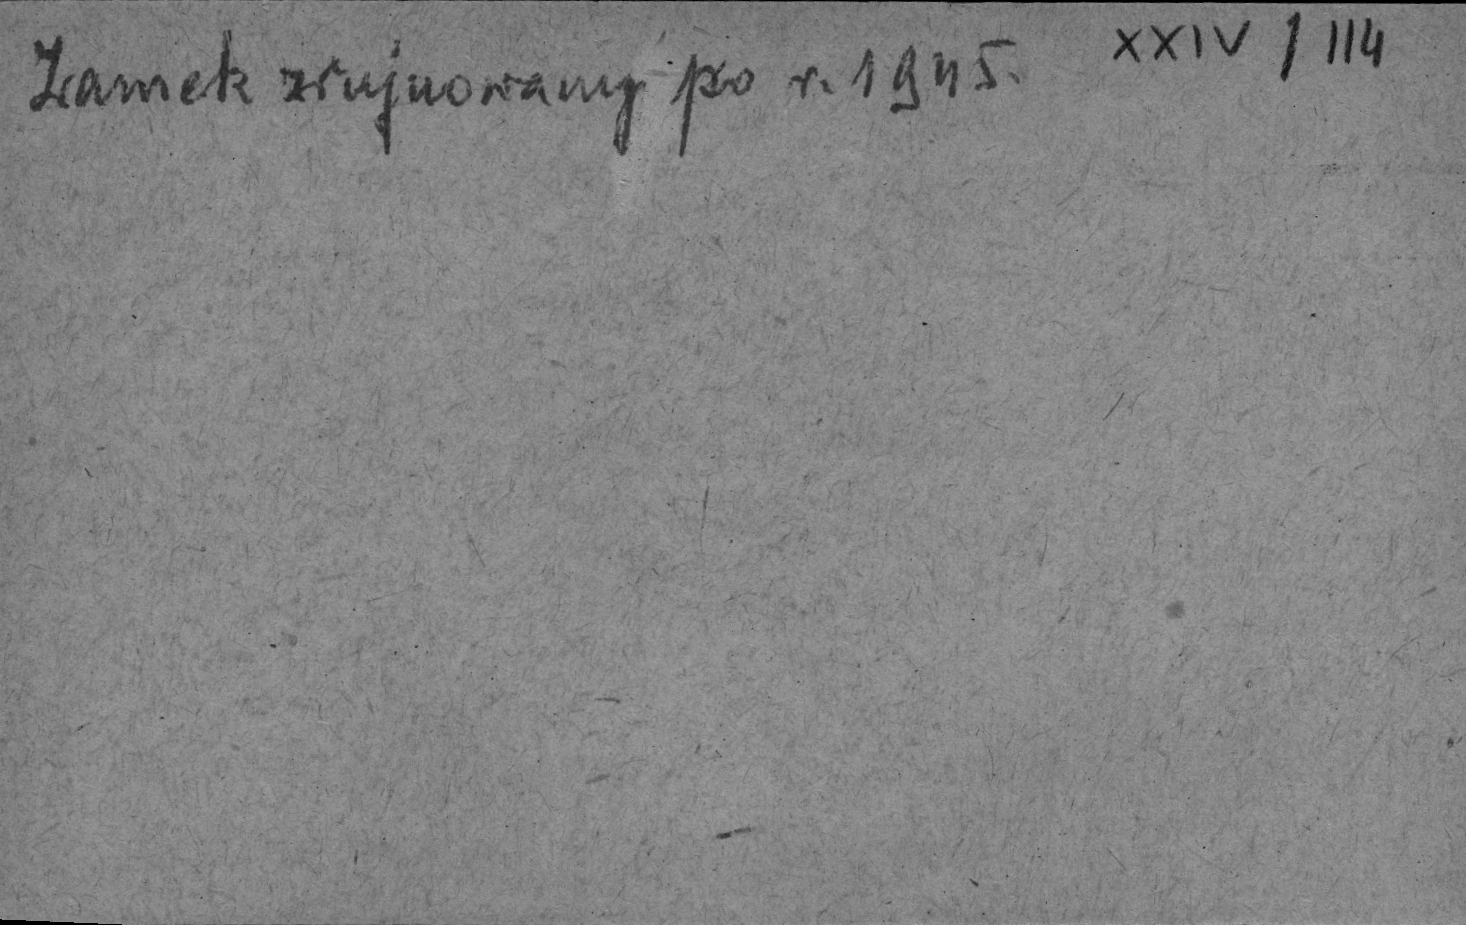 Zamek zrujnowany po r. 1945.
XXIV / 114